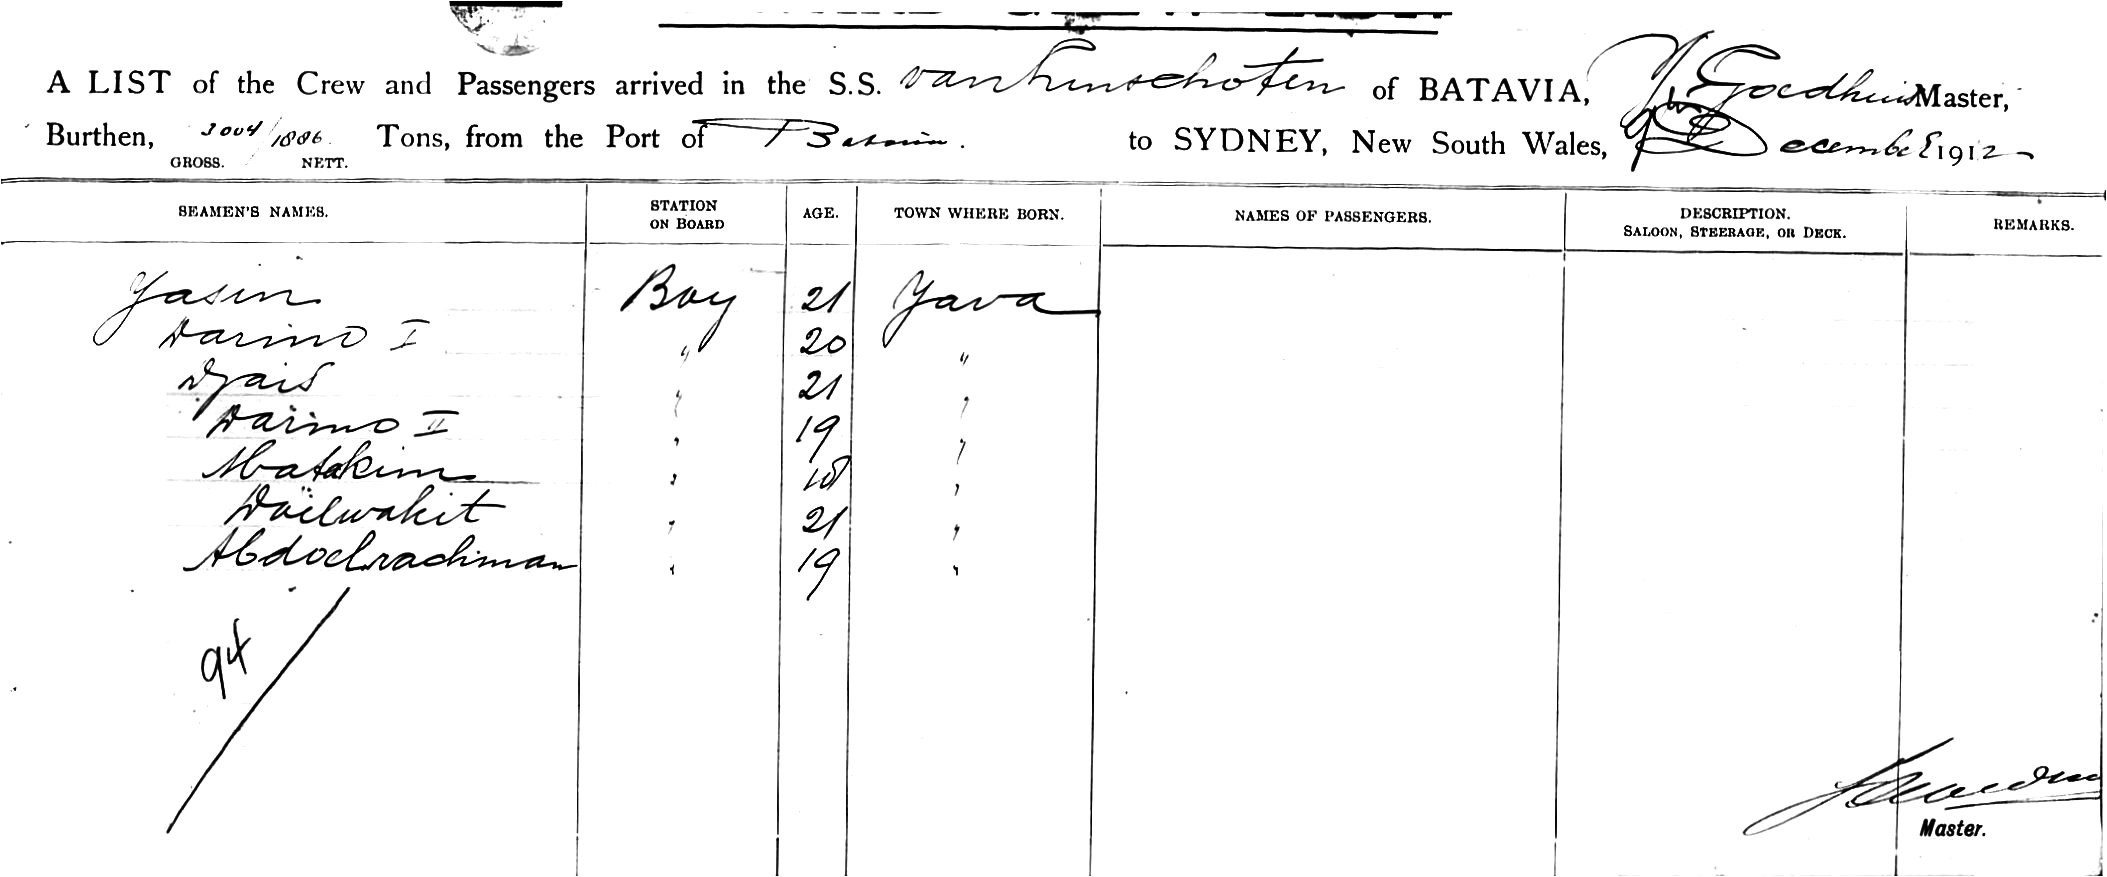 A LIST of the Crew and Passengers arrived in the S.S. van Linschoten of BATAVIA, Goedhuis Master,
Burthen, 3004/1886 Tons, from the Port of Batavia. to SYDNEY, New South Wales, 9th December 1912
GROSS. NETT.
SEAMEN'S NAMES. STATION ON BOARD AGE. TOWN WHERE BORN. NAMES OF PASSENGERS. DESCRIPTION. SALOON, STEERAGE, OR DECK. REMARKS.
Yasin Boy 21 Yava
Darimo I " 20 "
Djais " 21 "
Darimo II " 19 "
Matakim " 18 "
Doelwahit " 21 "
Abdoelrachman " 19 "
94
Master.